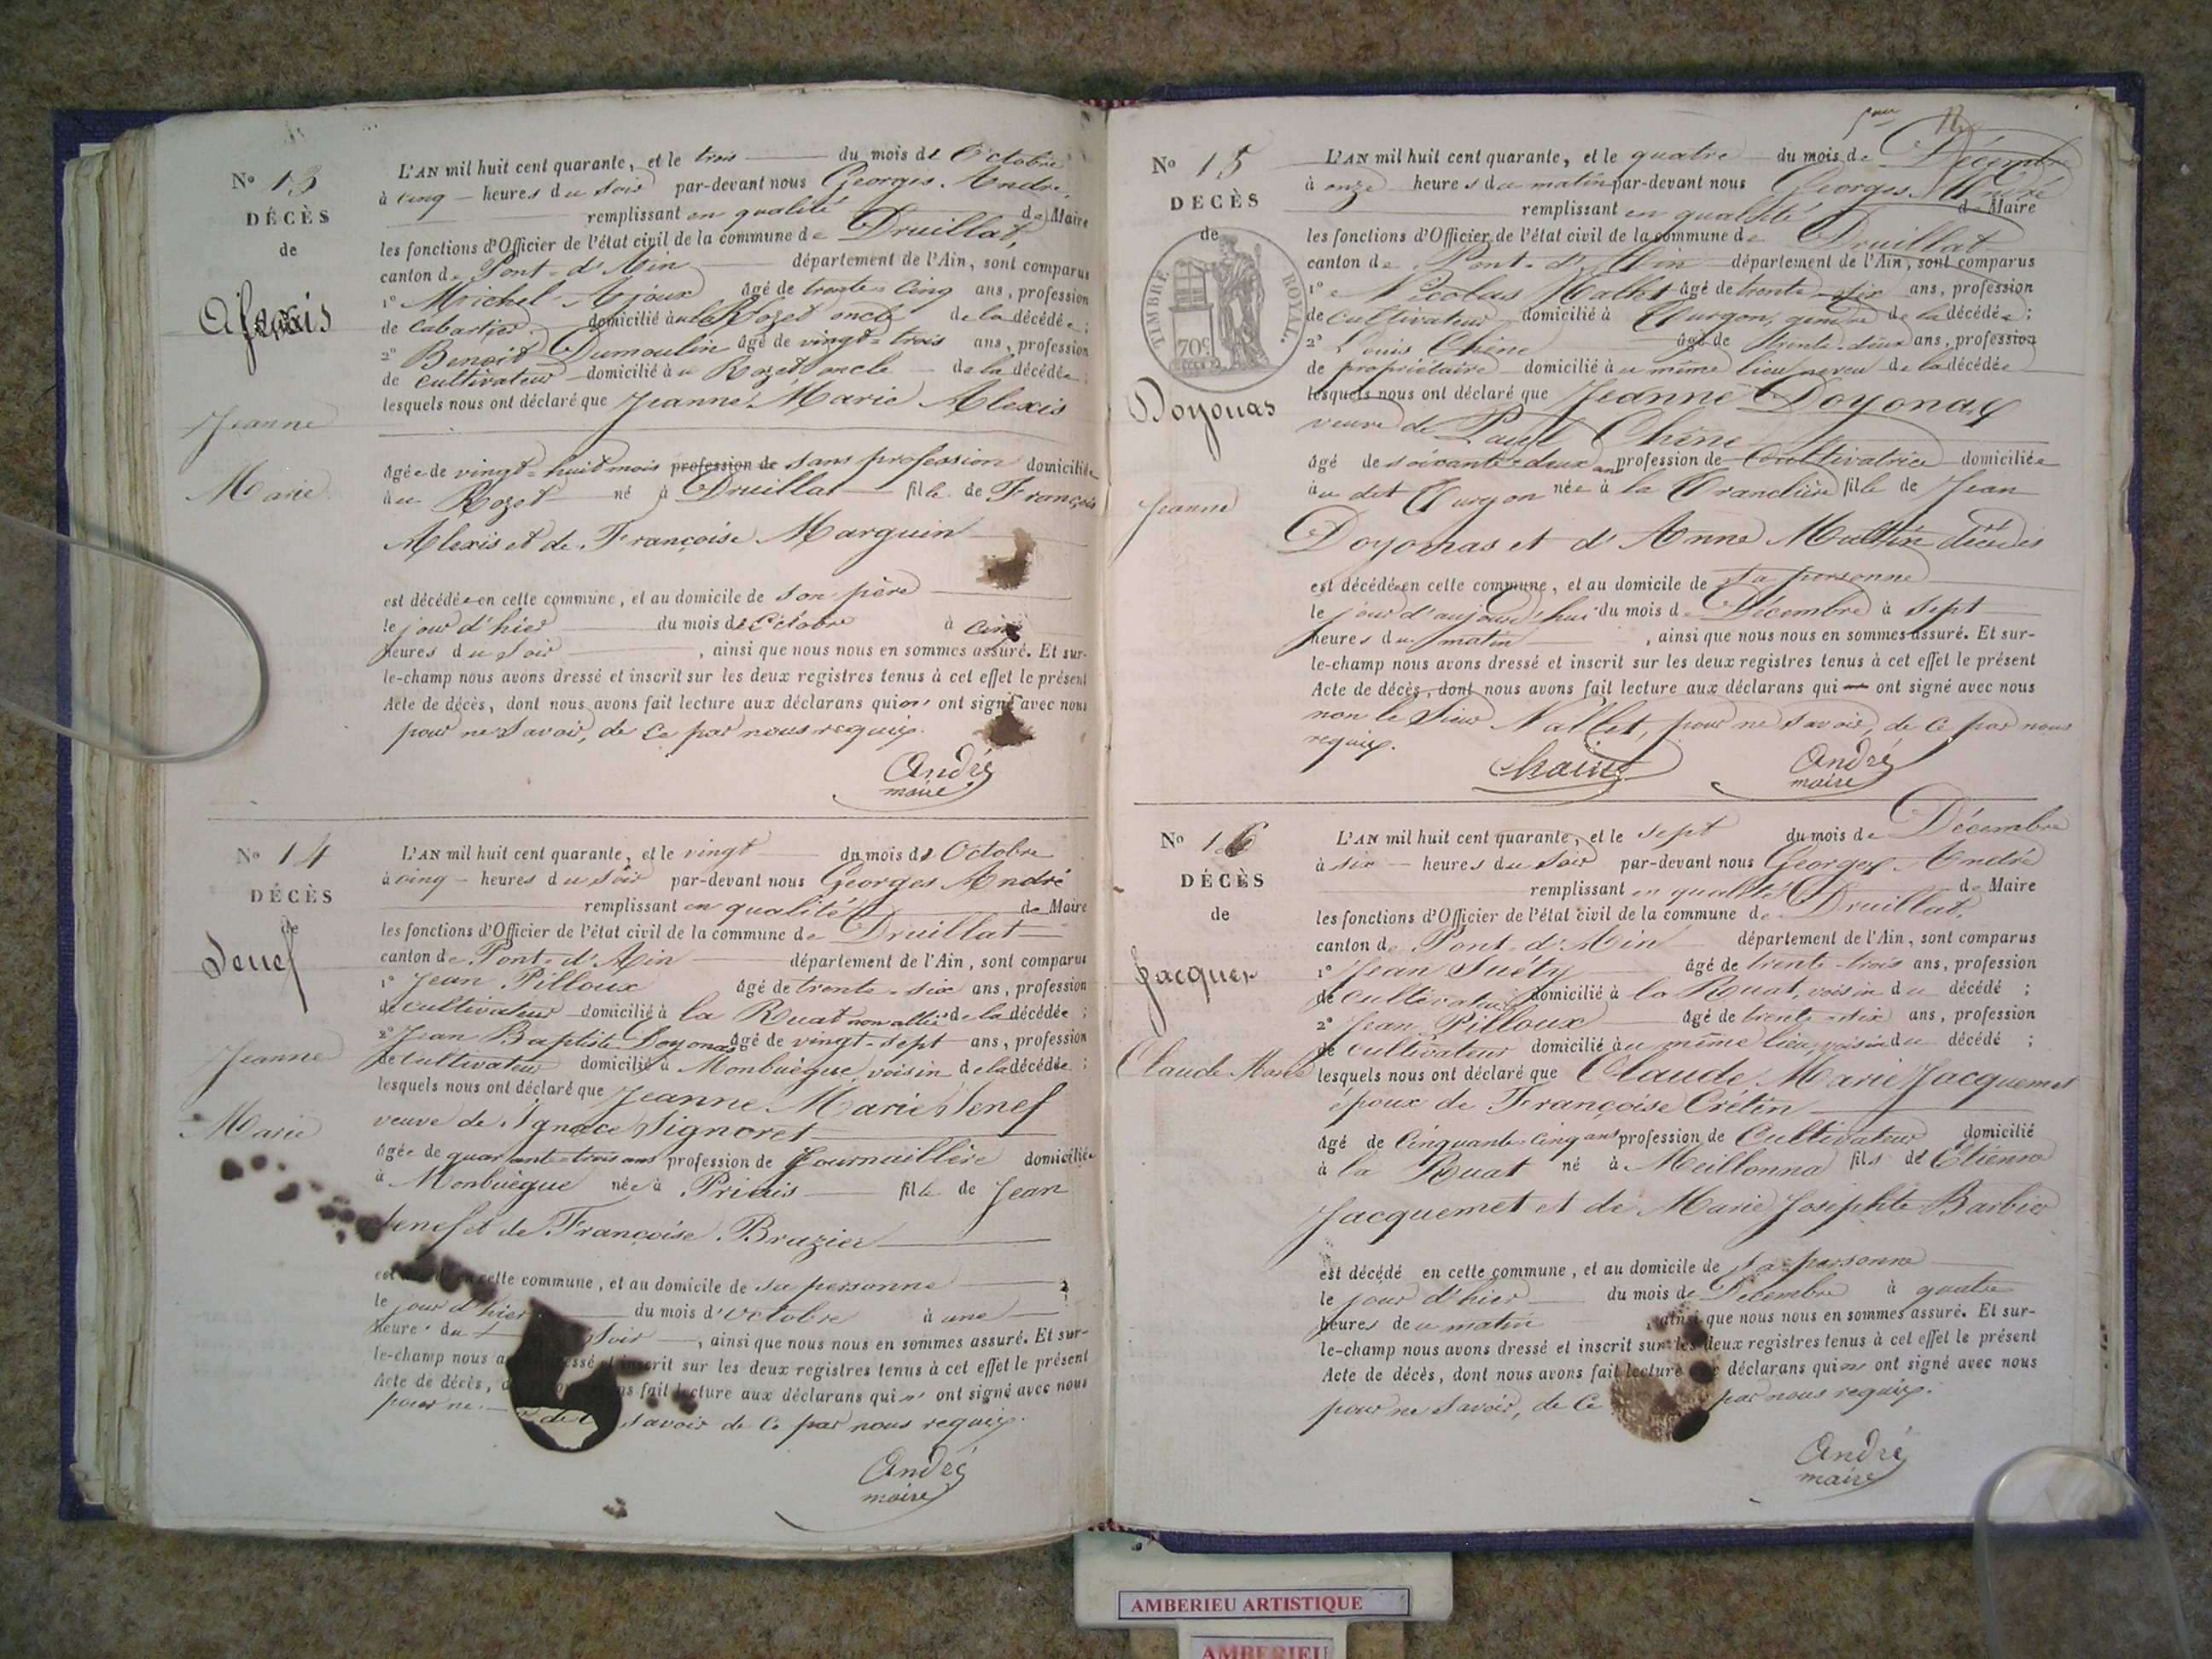 N° 13
DÉCÈS
de
Alexis
Jeanne
Marie
L'AN mil huit cent quarante, et le trois du mois de Octobre
à cinq heures du soir par-devant nous Georges André
remplissant en qualité de Maire
les fonctions d'Officier de l'état civil de la commune de Druillat,
canton de Pont-d'Ain département de l'Ain, sont comparus
1° Michel Ajoux âgé de trente-cinq ans, profession
de cabartier domicilié au Rozet oncle de la décédée ;
2° Benoit Dumoulin âgé de vingt-trois ans, profession
de cultivateur domicilié au Rozet oncle de la décédée ;
lesquels nous ont déclaré que Jeanne Marie Alexis
âgée de vingt-huit mois profession de sans profession domiciliée
au Rozet né à Druillat fille de François
Alexis et de Françoise Marguin
est décédée en cette commune, et au domicile de son père
le jour d'hier du mois de Octobre à cinq
heures du soir , ainsi que nous nous en sommes assuré. Et sur-
le-champ nous avons dressé et inscrit sur les deux registres tenus à cet effet le présent
Acte de décès, dont nous avons fait lecture aux déclarans qui n' ont signé avec nous
pour ne savoir, de ce par nous requis.
André
maire
N° 14
DÉCÈS
de
Senef
Jeanne
Marie
L'AN mil huit cent quarante, et le vingt du mois de Octobre
à cinq heures du soir par-devant nous Georges André
remplissant en qualité de Maire
les fonctions d'Officier de l'état civil de la commune de Druillat
canton de Pont-d'Ain département de l'Ain, sont comparus
1° Jean Pilloux âgé de trente-six ans, profession
de cultivateur domicilié à la Ruat non allié de la décédée ;
2° Jean Baptiste Doyonas âgé de vingt-sept ans, profession
de cultivateur domicilié à Monbuègue, voisin de la décédée ;
lesquels nous ont déclaré que Jeanne Marie Senef
veuve de Ignace Signoret
âgée de quarante-trois ans profession de Journaillère domiciliée
à Monbuègue née à Priais fille de Jean
Senef et de Françoise Brazier
est en cette commune, et au domicile de sa personne
le jour d'hier du mois d'Octobre à une
heure du soir , ainsi que nous nous en sommes assuré. Et sur-
le-champ nous a dressé et inscrit sur les deux registres tenus à cet effet le présent
Acte de décès, fait lecture aux déclarans qui n' ont signé avec nous
pour ne savoir de ce par nous requis.
André
maire
N° 15
DÉCÈS
de
TIMBRE ROYAL.
70c
Doyonas
Jeanne
L'AN mil huit cent quarante, et le quatre du mois de Décembre
à onze heures du matin par-devant nous Georges André
remplissant en qualité de Maire
les fonctions d'Officier de l'état civil de la commune de Druillat
canton de Pont-d'Ain département de l'Ain, sont comparus
1° Nicolas Nallet âgé de trente-six ans, profession
de cultivateur domicilié à Turgon, gendre de la décédée ;
2° Louis Chêne âgé de trente-deux ans, profession
de propriétaire domicilié au même lieu neveu de la décédée
lesquels nous ont déclaré que Jeanne Doyonas
veuve de Paul Chêne
âgé de soixante-deux ans profession de Cultivatrice domiciliée
au dit Turgon née à la Tranclière fille de Jean
Doyonas et d'Anne décédés
est décédée en cette commune, et au domicile de sa personne
le jour d'aujourd'hui du mois de Décembre à sept
heures du matin , ainsi que nous nous en sommes assuré. Et sur-
le-champ nous avons dressé et inscrit sur les deux registres tenus à cet effet le présent
Acte de décès, dont nous avons fait lecture aux déclarans qui ont signé avec nous
non le Sieur Nallet, pour ne savoir, de ce par nous
requis.
Chaine
André
maire
N° 16
DÉCÈS
de
Jacquemet
Claude Marie
L'AN mil huit cent quarante, et le sept du mois de Décembre
à six heures du soir par-devant nous Georges André
remplissant en qualité de Maire
les fonctions d'Officier de l'état civil de la commune de Druillat,
canton de Pont-d'Ain département de l'Ain, sont comparus
1° Jean Suéty âgé de trente-trois ans, profession
de cultivateur domicilié à la Ruat, voisin du décédé ;
2° Jean Pilloux âgé de trente-six ans, profession
de cultivateur domicilié au même lieu, voisin du décédé ;
lesquels nous ont déclaré que Claude Marie Jacquemet
époux de Françoise Crétin
âgé de Cinquante-cinq ans profession de Cultivateur domicilié
à la Ruat né à Meillonna fils de Etienne
Jacquemet et de Marie Josephte Barbier
est décédé en cette commune, et au domicile de sa personne
le jour d'hier du mois de Décembre à quatre
heures du matin , ainsi que nous nous en sommes assuré. Et sur-
le-champ nous avons dressé et inscrit sur les deux registres tenus à cet effet le présent
Acte de décès, dont nous avons fait lecture déclarans qui n' ont signé avec nous
pour ne savoir, de ce par nous requis.
André
maire
AMBERIEU ARTISTIQUE
AMBERIEU